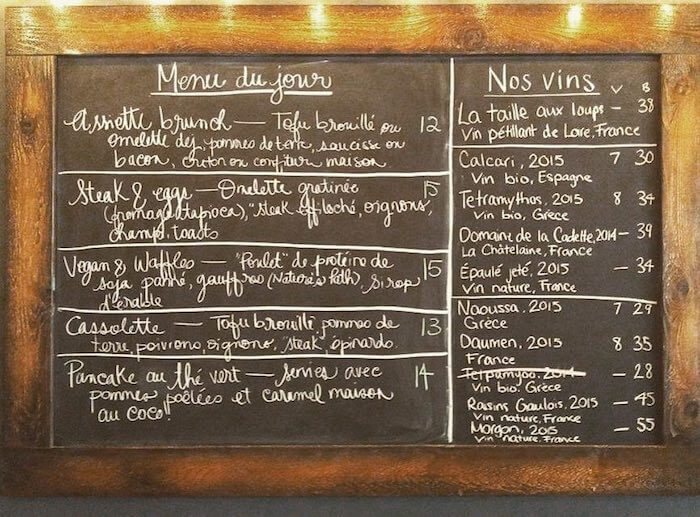 Menu du jour
Assiette brunch — Tofu brouillé ou 12
omelette déj, pommes de terre, saucisse ou
bacon, creton ou confiture maison
Steak & eggs — Omelette gratinée 15
(fromage & tapioca), "steak" effiloché, oignons,
champ. toasts
Vegan & Waffles — "Poulet" de protéine de 15
soja pané, gauffres (Nature's Path), sirop
d'érable
Cassolette — Tofu brouillé, pommes de 13
terre, poivrons, oignons, "steak", épinards.
Pancake au thé vert — servies avec 14
pommes poêlées et caramel maison
au coco!
Nos vins V B
La taille aux loups — 38
Vin pétillant de Loire, France
Calcari, 2015 7 30
Vin bio, Espagne
Tetramythos, 2015 8 34
Vin bio, Grèce
Domaine de la Cadette, 2014 — 39
La Châtelaine, France
Épaulé jeté, 2015 — 34
Vin nature, France
Naoussa, 2015 7 29
Grèce
Daumen, 2015 8 35
France
2014 — 28
Vin bio, Grèce
Raisins Gaulois, 2015 — 45
Vin nature, France
Morgon, 2015 — 55
Vin nature, France